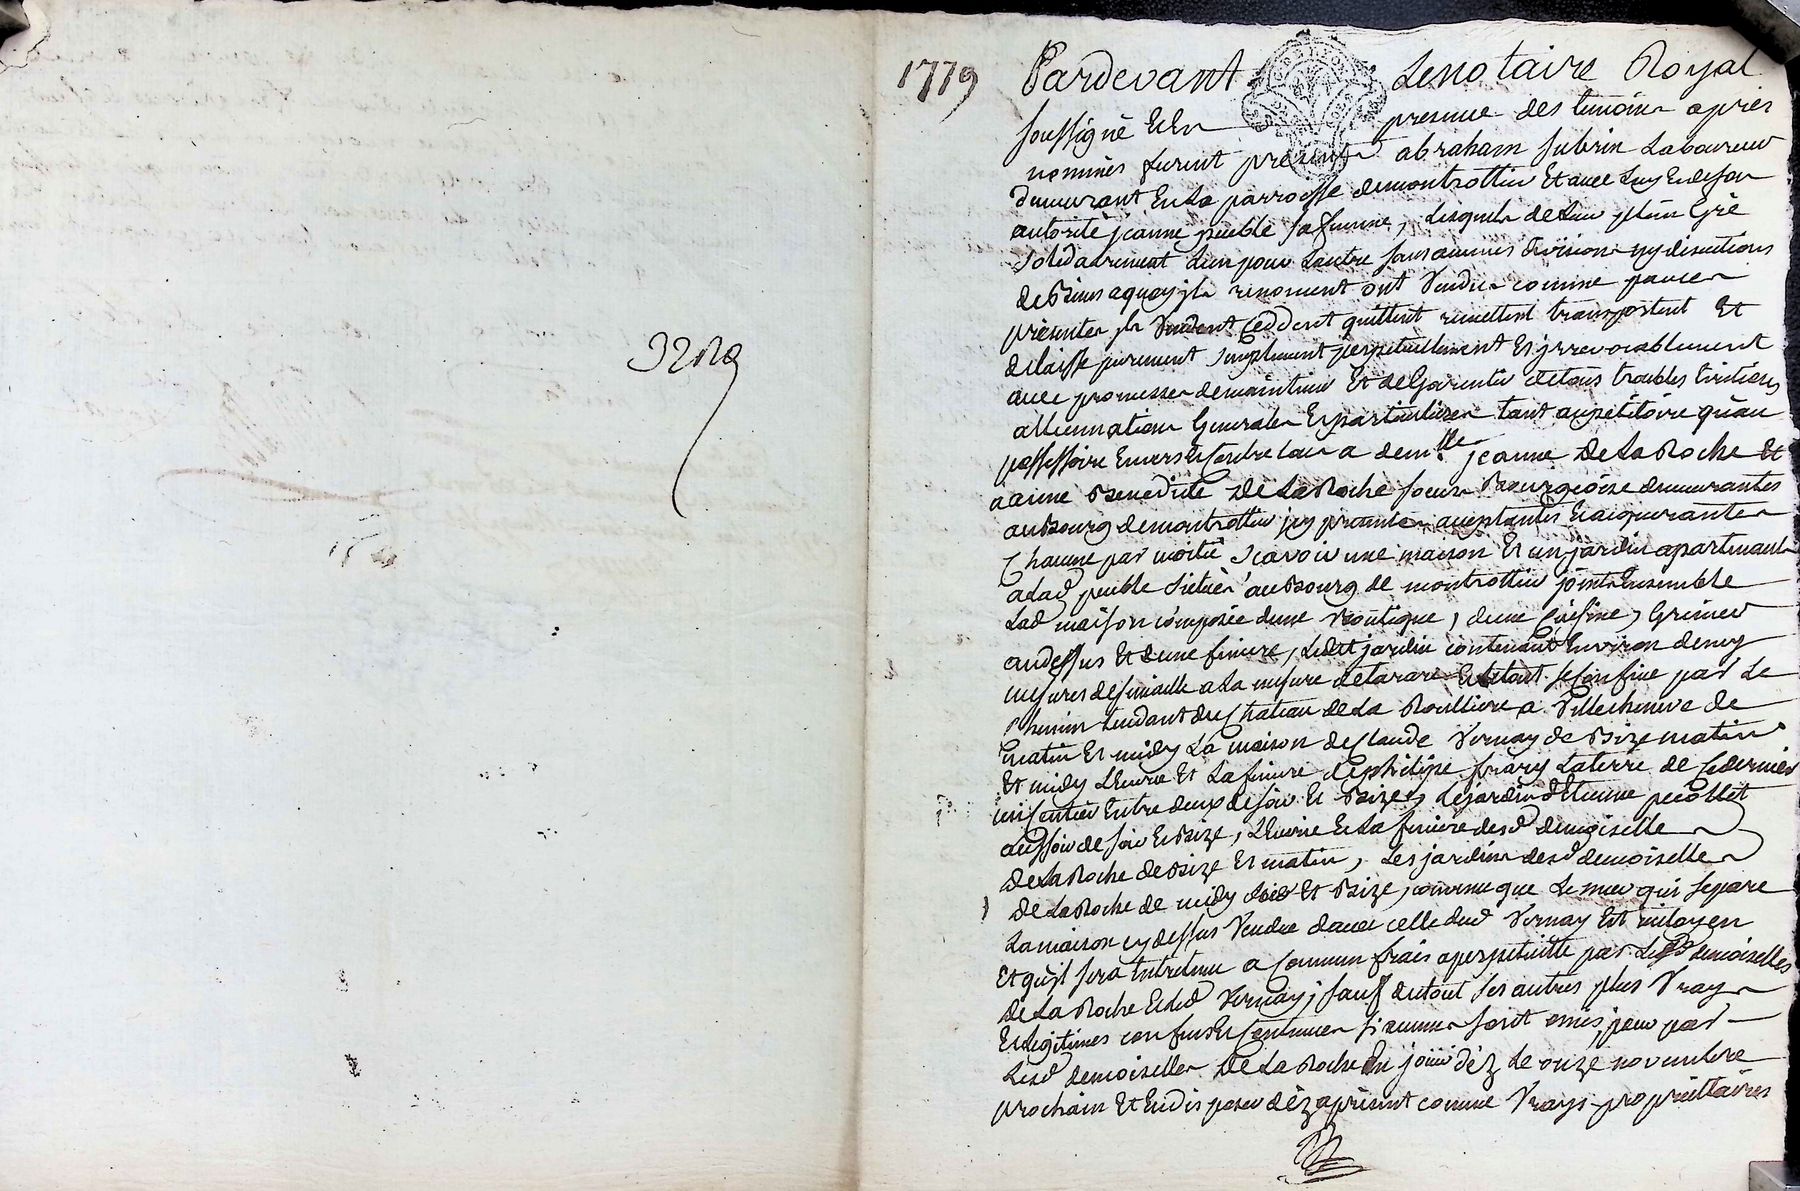 1779 Pardevant Le notaire Royal
soussigné Et En presence des temoins apres
nommés furent presents abraham subrin Laboureur
demeurant En La parroisse demontrottier Et avec Luy En de son
autorité jeanne peuble sa femme, Lesquels de Leur plein Gré
solidairement Lun pour Lautre sans aucunes division ny discutions
de Biens aquoy jls renoncent ont Vendu comme parces
presentes jls Vendent Ceddent quittent remettent transportent Et
delaisse purement simplement perpetuellement Et jrrevocablement
avec promesses demaintenir Et de Garentir detous troubles
Generales Et particulieres tant aupetitoire quau
possessoire Envers Et Contre tous a dem.lle jeanne De La Roche Et
a anne Benedite De La Roche soeurs Bourgeoise demeurantes
au Bourg demontrottier jcy presentes aceptantes Et acquerantes
Chacune par moitié scavoir une maison Et un jardin apartenant
alad peuble situés au Bourg de montrottier joints Ensemble
Lad maison composée dune Boutique, dune Cuisine, Grenier
audessus Et dune finiere, Ledit jardin contenant Environ demy
mesures desemaille a La mesure detarare Et Letout se Confine par Le
Chemin tendant du Chateau de La Roulliere a Villecheneve de
matin Et midy La maison de Claude Vernay de Bize matin
Et midy Lecurie Et La finiere de philipe La terre de Ce dernier
un sentier Entre deux de soir Et Bize, Le jardin dEtienne pecollet
aussy de soir Et Bize, LEcurie Et La finiere desd demoiselles
De La Roche de Bize Et matin, Les jardins desd demoiselles
De La Roche de midy Et Bize, convenu que Le mur qui separe
La maison cy dessus Vendue davec celle dud Vernay Est mitoyen
Et quil sera Entretenu a Commun frais aperpetuitte par Lesd demoiselles
De La Roche Et Led Vernay, sauf detout ses autres plus Vrays
Et Legitimes confins Et Contenues si aucunes sont omis, pour par
Lesd demoiselles De La Roche En jouir déz Le onze novembre
prochain Et En disposer déz apresent comme Vrays proprietaires